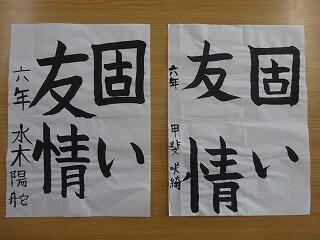 固い
友情
六年 水木陽舵
固い
友情
六年 甲斐咲綺